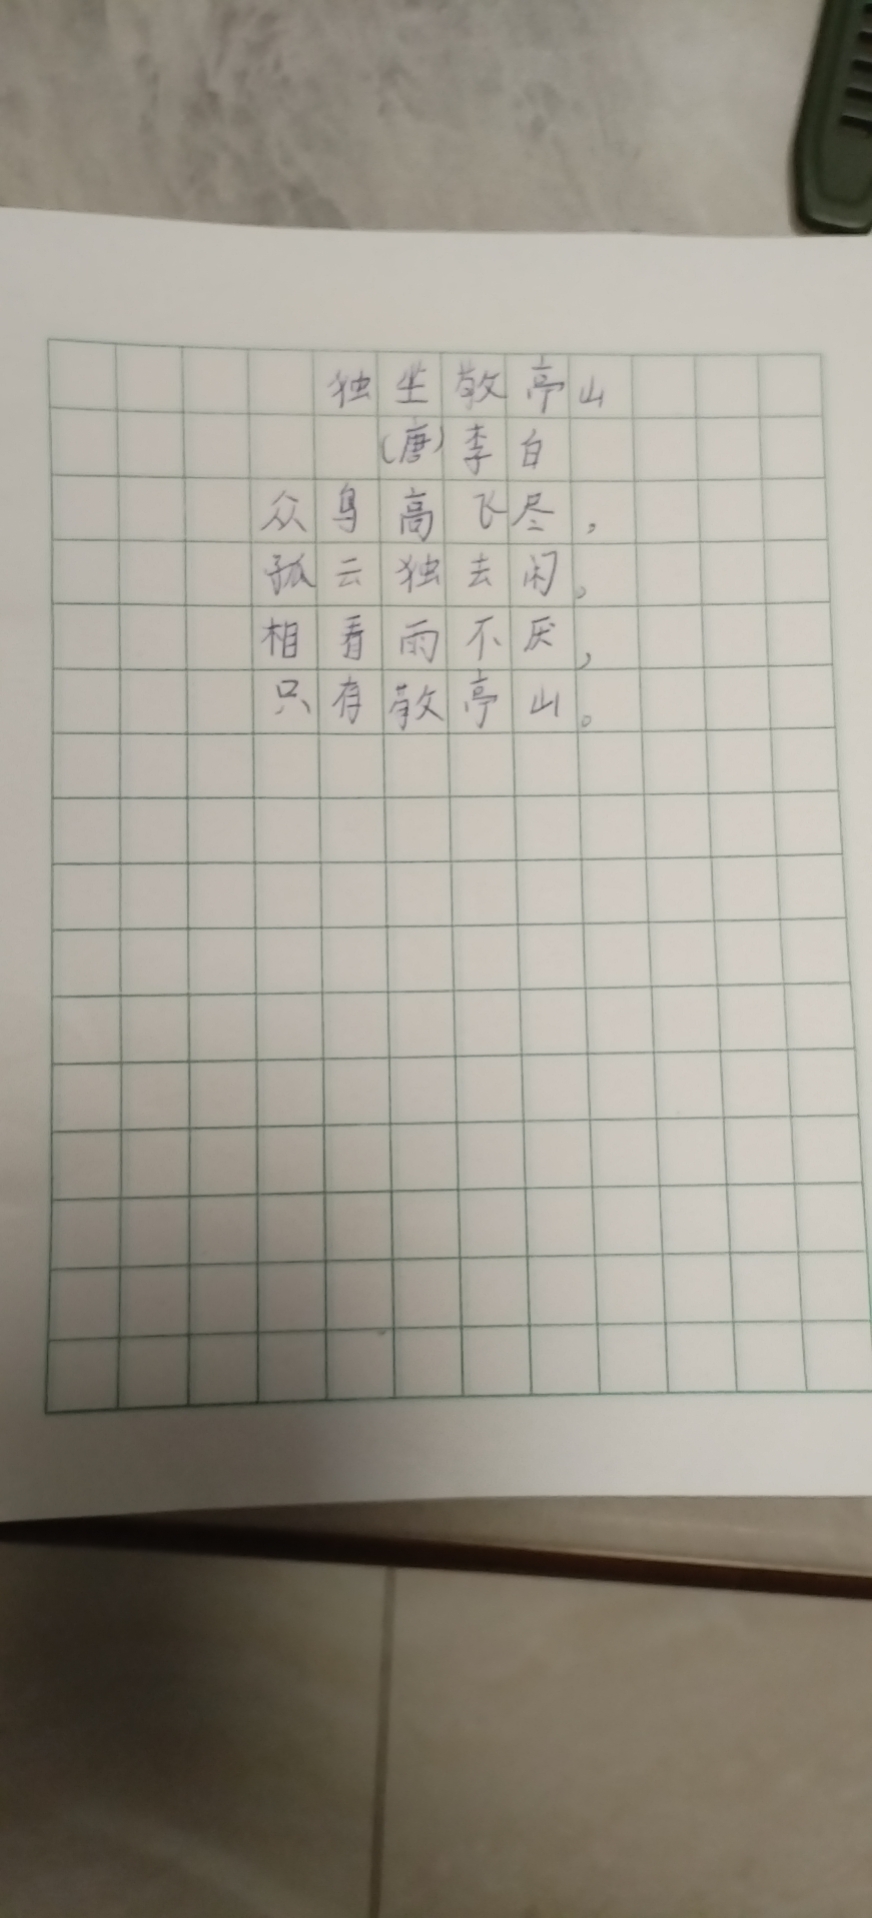 独坐敬亭山
(唐)李白
众鸟高飞尽,
孤云独去闲。
相看雨不厌,
只有敬亭山。